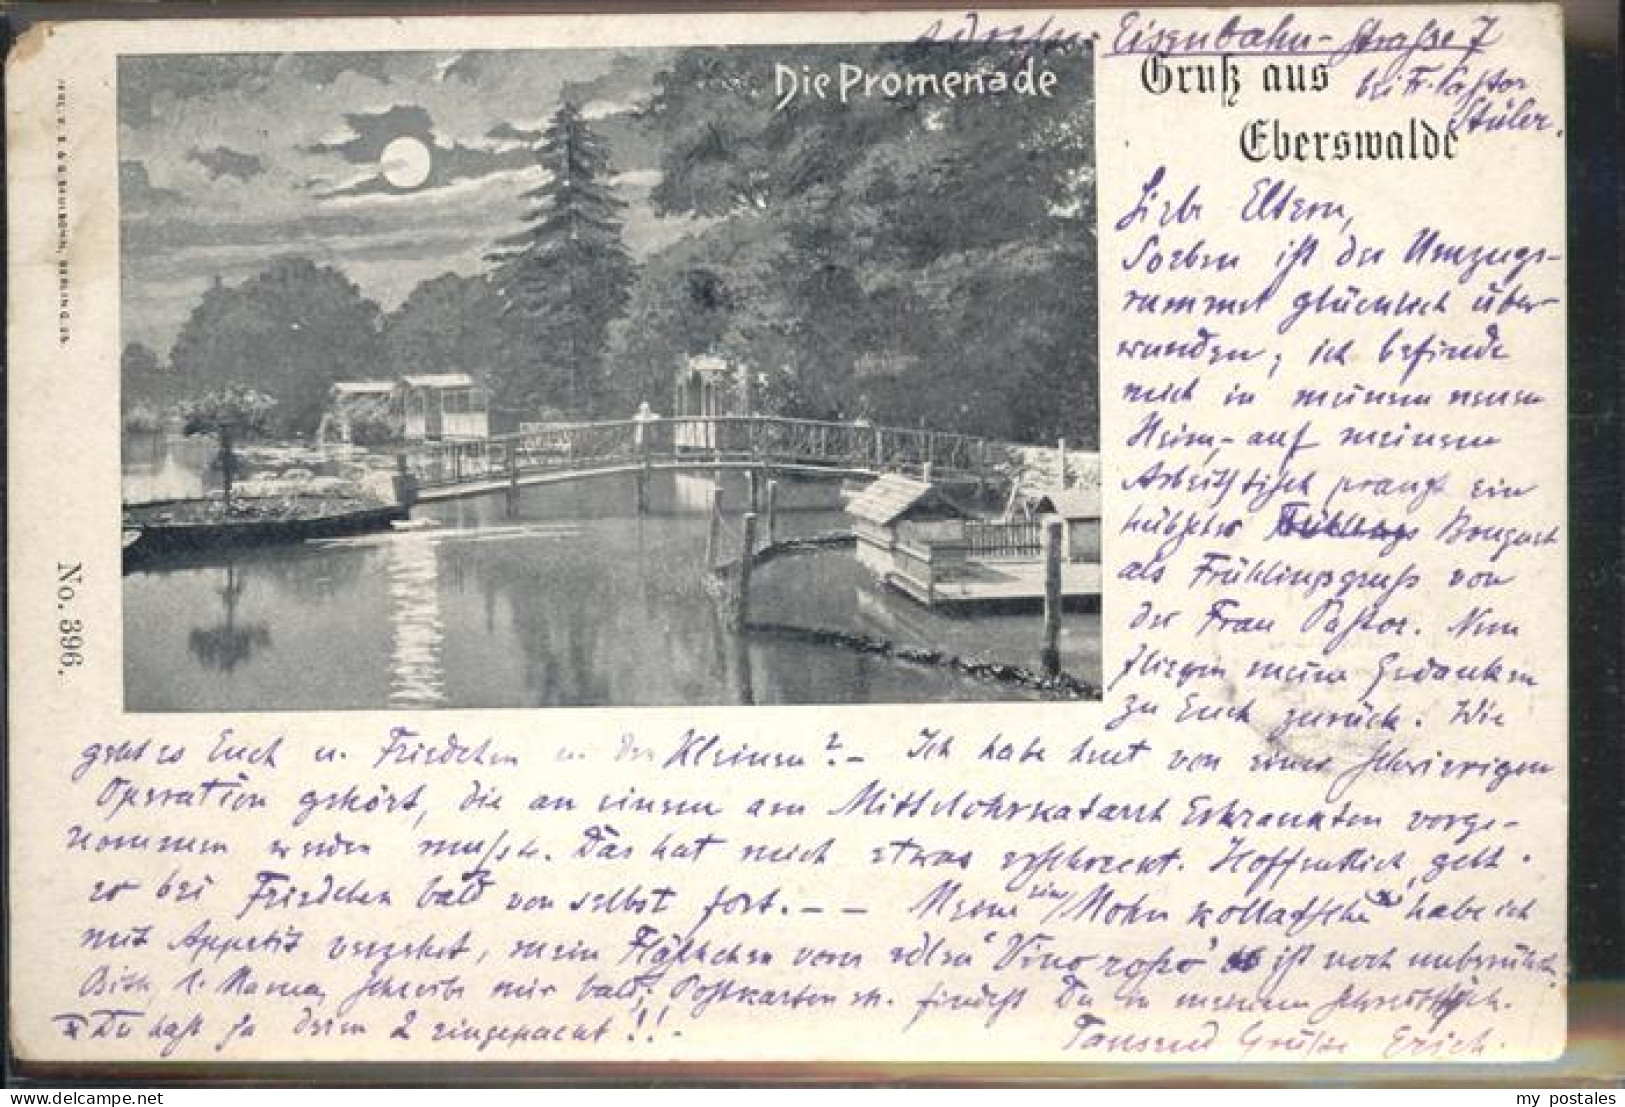 Adresse: Eisenbahn-Straße 7
bei Fr. Pastor
Stüler.
Die Promenade
Gruß aus
Eberswalde
Liebe Eltern,
Soeben ist der Umzugs-
rummel glücklich über-
wunden; ich befinde
mich in meinem neuen
Heim, - auf meinem
Arbeitstisch prangt ein
hübsches Bouquet
als Frühlingsgruß von
der Frau Pastor. Nun
fliegen meine Gedanken
zu Euch zurück. Wie
geht es Euch u. Friedchen u. den Kleinen? - Ich habe heut von einer schwierigen
Operation gehört, die an einem am Mittelohrkatarrh Erkrankten vorge-
nommen werden mußte. Das hat mich etwas erschreckt. Hoffentlich geht
es bei Friedchen bald von selbst fort. - - Meine eine Mohn habe ich
mit Appetit verzehrt, mein Fläschchen vom edlen 'Vino rosso' ist noch unberührt.
Bitte, l. Mama, schreibe mir bald; Postkarten etc. findest Du in meinem
Du hast ja deren 2 eingepackt!! -
Tausend Grüße Erich.
No. 396.
my postales